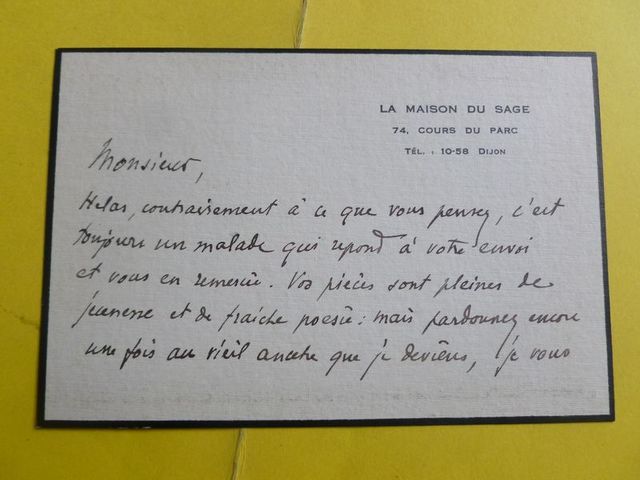 LA MAISON DU SAGE
74, COURS DU PARC
TÉL. : 10-58 DIJON
Monsieur,
Helas, contrairement à ce que vous pensez, c'est
toujours un malade qui repond à votre envoi
et vous en remercie. Vos pièces sont pleines de
jeunesse et de fraîche poesie : mais pardonnez encore
une fois au vieil ancetre que je deviens, je vous